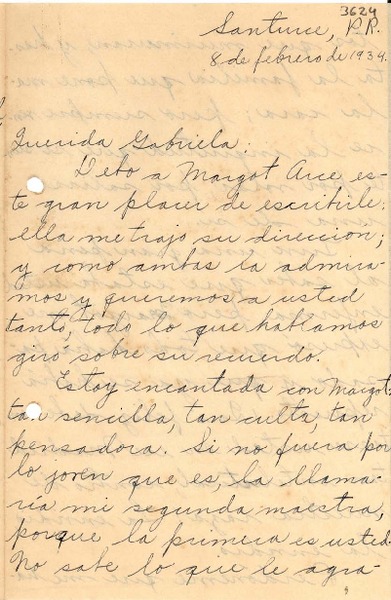 3624
Santurce, P.R.
8 de febrero de 1934.
Querida Gabriela:
Debo a Margot Arce es-
te gran placer de escribirle:
ella me trajo su dirección;
y como ambas la admira-
mos y queremos a usted
tanto, todo lo que hablamos
giró sobre su recuerdo.
Estoy encantada con Margot:
tan sencilla, tan culta, tan
pensadora. Si no fuera por
lo joven que es, la llama-
ría mi segunda maestra,
porque la primera es usted.
No sabe lo que le agra-